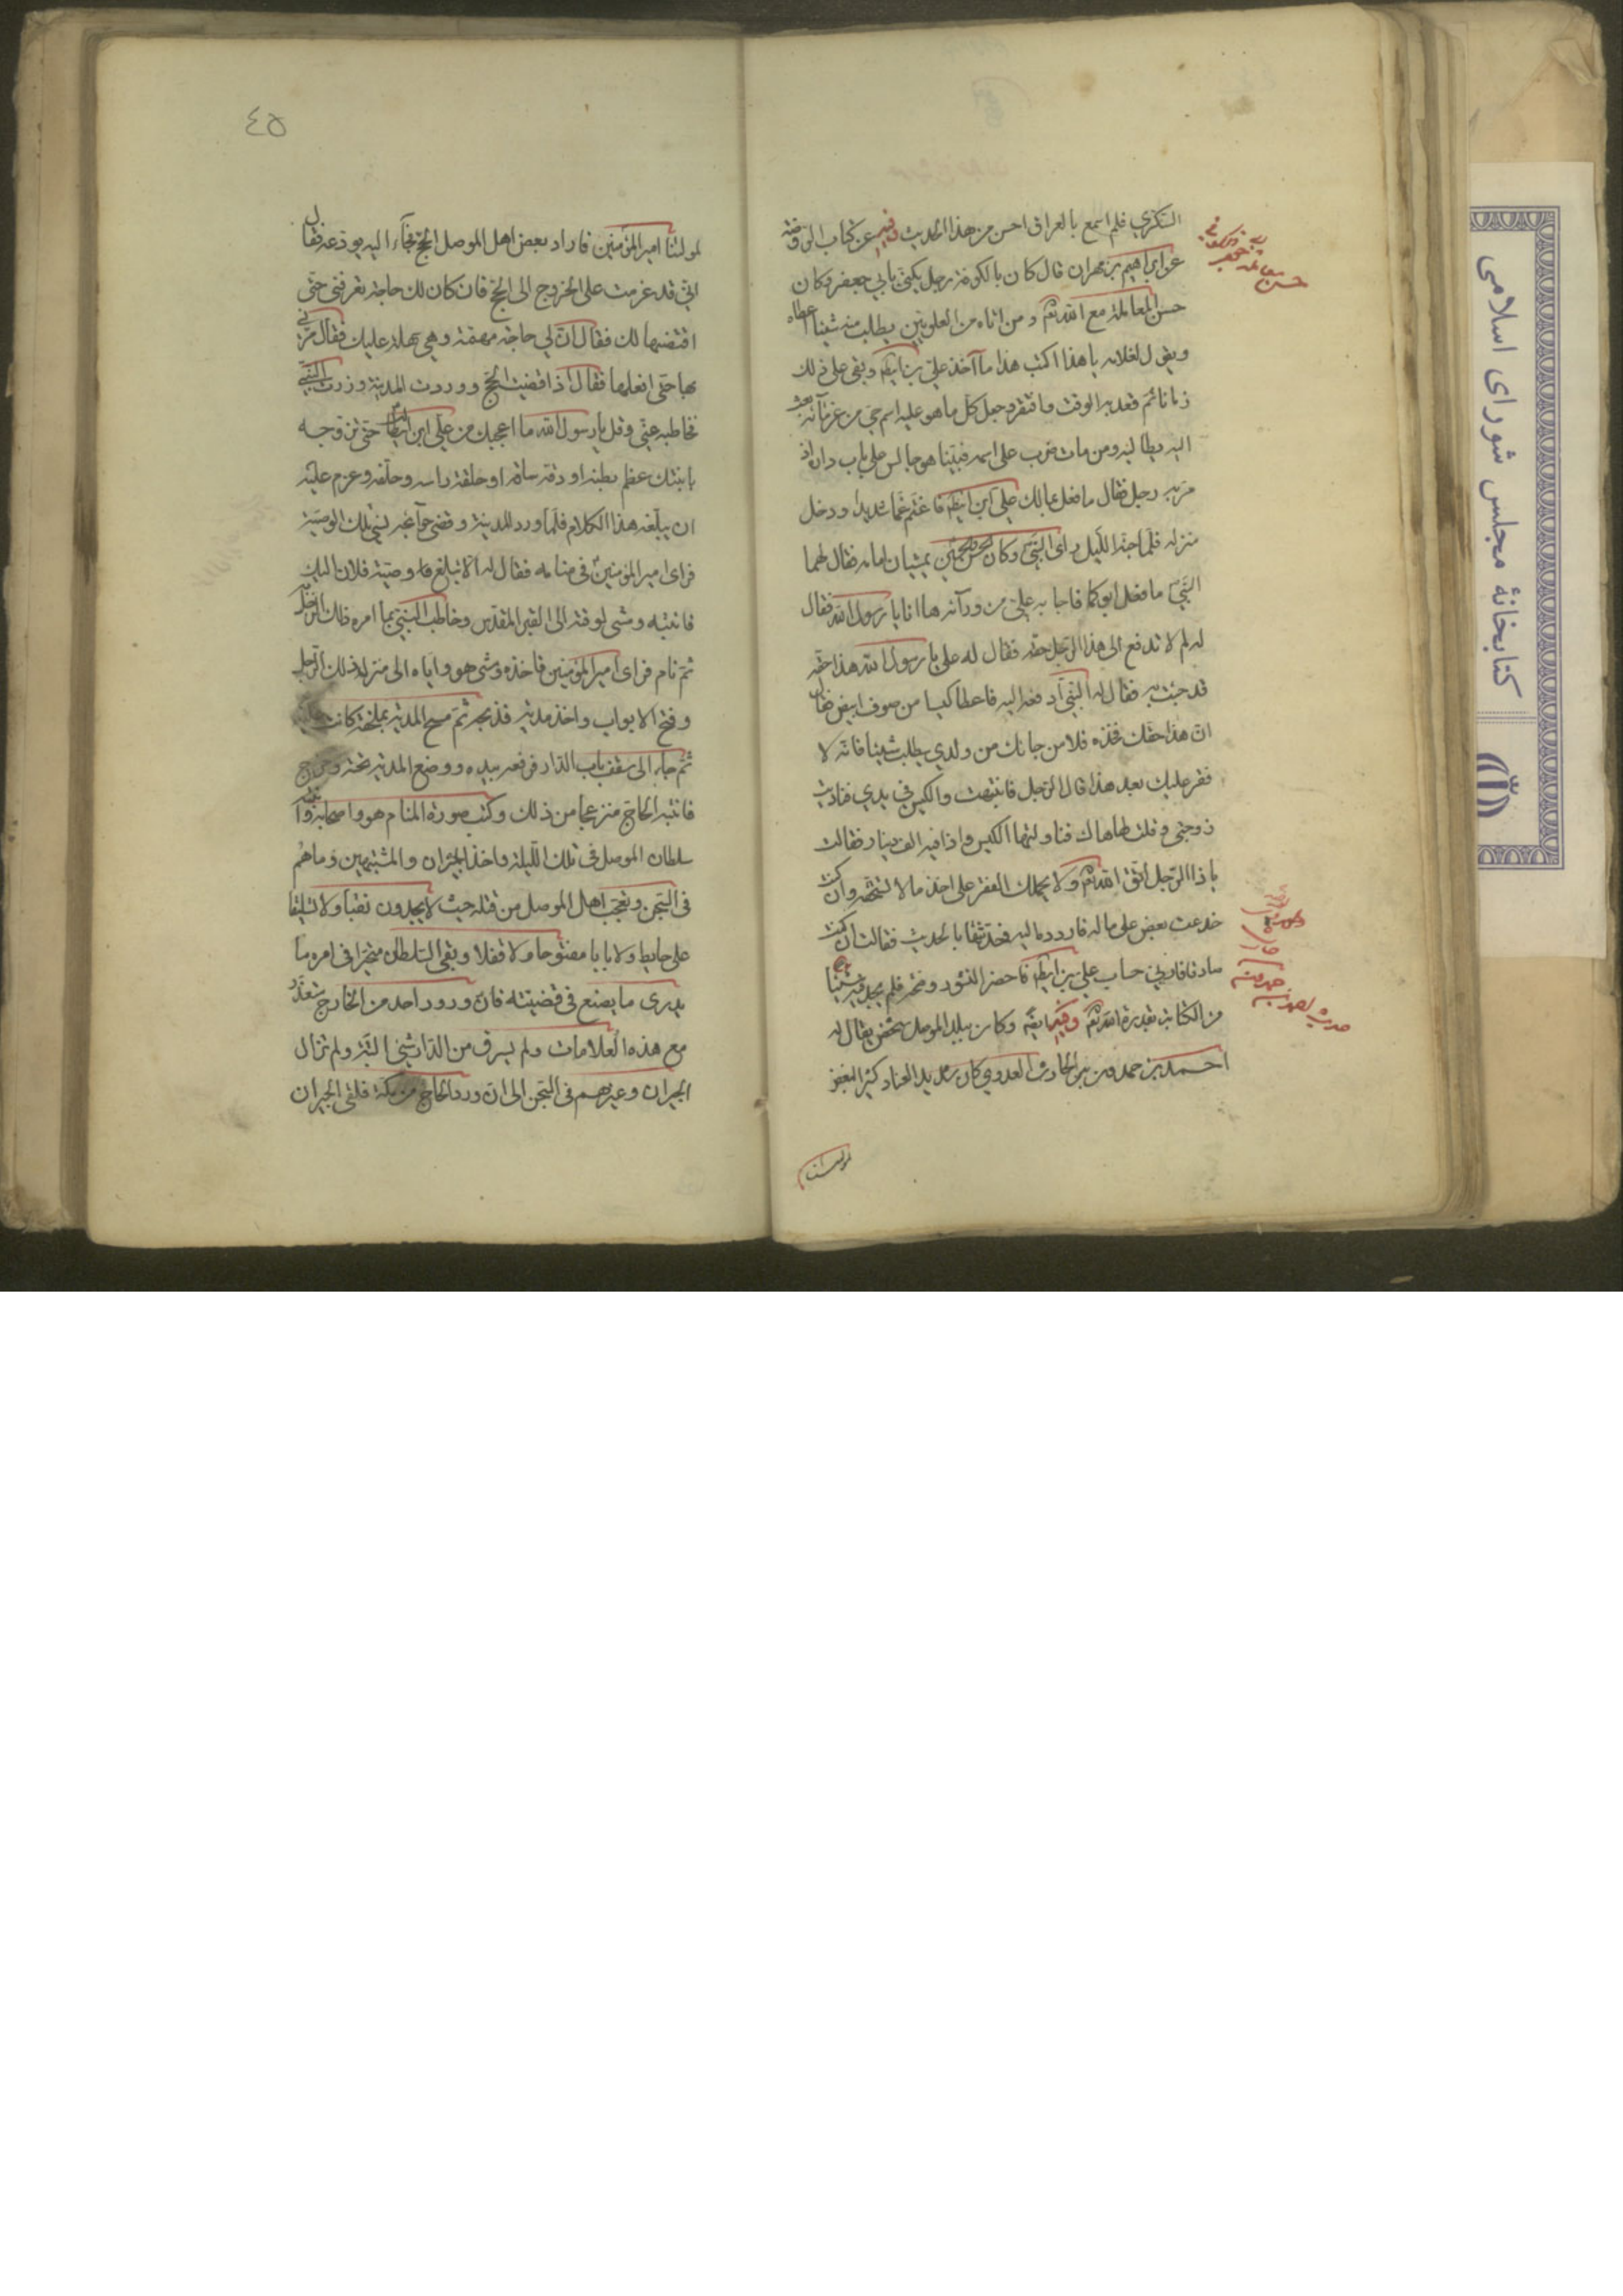 السكري فلم اسمع بالعراق احسن من هذا الحديث وفيه عن كتاب الروضة
عن ابراهيم بن مهران قال كان بالكوفة رجل يكنى بابي جعفر وكان
حسن المعاملة مع الله تع ومن اتاه من العلويين يطلب منه شيئا اعطاه
ويقول لغلامه يا هذا اكتب هذا ما اخذ علي بن ابيطالب وبقى على ذلك
زمانا ثم قعد به الوقت وافتقر وجعل كل ما هو عليه اسم حي من غرمائه بعث
اليه يطالبه ومن مات ضرب على اسمه فبينا هو جالس على باب داره اذ
مر به رجل فقال ما فعل بمالك علي ابن ابيطالب فاغتم غما شديدا ودخل
منزله فلما جنه الليل راى النبي وكان الحسن والحسين يمشيان امامه فقال لهما
النبي ما فعل ابوكما فاجابه علي من ورآئه ها انا يا رسول الله فقال
له لم لا تدفع الى هذا الرجل حقه فقال له علي يا رسول الله هذا حقه
قد جئت به فقال له النبي ادفعه اليه فاعطا كيسا من صوف ابيض فقال
ان هذا حقك فخذه فلا من جائك من ولدي يطلب شيئا فانه لا
فقر عليك بعد هذا قال الرجل فانتبهت والكيس في يدي فناديت
زوجتي وقلت لها هاك فناولتها الكيس واذا فيه الف دينار فقالت
يا ذا الرجل اتق الله تع ولا يحملك الفقر على اخذ ما لا تستحقه وان كنت
خدعت بعض على ماله فاردده اليه فحدثتها بالحديث فقالت ان كنت
صادقا فارني حساب علي بن ابيطالب فاحضر الدستور وفتحه فلم يجد فيه شيئا
من الكتابة بقدرة الله تع وفيه ايضا وكان ببلد الموصل شخص يقال له
احمد بن حمدون بن الحارث العدوي كان شديد العناد كثير البغض
لمولانا
حديث احمد بن حمدون
لمولانا امير المؤمنين فاراد بعض اهل الموصل الحج فجآء اليه يودعه فقال
اني قد عزمت على الخروج الى الحج فان كان لك حاجة تعرفني حتى
اقتضيها لك فقال ان لي حاجة مهمة وهي سهلة عليك فقال مرني
بها حتى افعلها فقال اذا قضيت الحج ووردت المدينة وزرت النبي
فخاطبه عني وقل يا رسول الله ما اعجبك من علي ابن ابيطالب حتى تزوجه
بابنتك عظم بطنه او دقة ساقه او حلقة راسه وحلفه وعزم عليه
ان يبلغه هذا الكلام فلما ورد المدينة وقضى حوآئجه نسي تلك الوصية
فراى امير المؤمنين في منامه فقال له الا تبلغ وصية فلان اليك
فانتبه ومشى لوقته الى القبر المقدس وخاطب النبي بما امره ذلك الرجل
ثم نام فراى امير المؤمنين فاخذه ومشى هو واياه الى منزل ذلك الرجل
وفتح الابواب واخذ مدية فذبحه ثم مسح المدية بملحفة كانت عليه
ثم جآء الى سقف باب الدار فرفعه بيده ووضع المدية تحته وخرج
فانتبه الحاج منزعجا من ذلك وكتب صورة المنام هو واصحابه وانتبه
سلطان الموصل في تلك الليلة واخذ الجيران والمشتبهين وماهم
في السجن وتعجب اهل الموصل من قتله حيث لا يجدون نقبا ولا تسليقا
على حايط ولا بابا مفتوحا ولا قفلا وبقى السلطان متحيرا في امره ما
يدرى ما يصنع في قضيته فان ورود احد من الخارج متعذر
مع هذه العلامات ولم يسرق من الدار شئ البتة ولم تزال
الجيران وغيرهم في السجن الى ان ورد الحاج من مكة فلقى الجيران
٤٥
كتابخانۀ مجلس شورای اسلامی